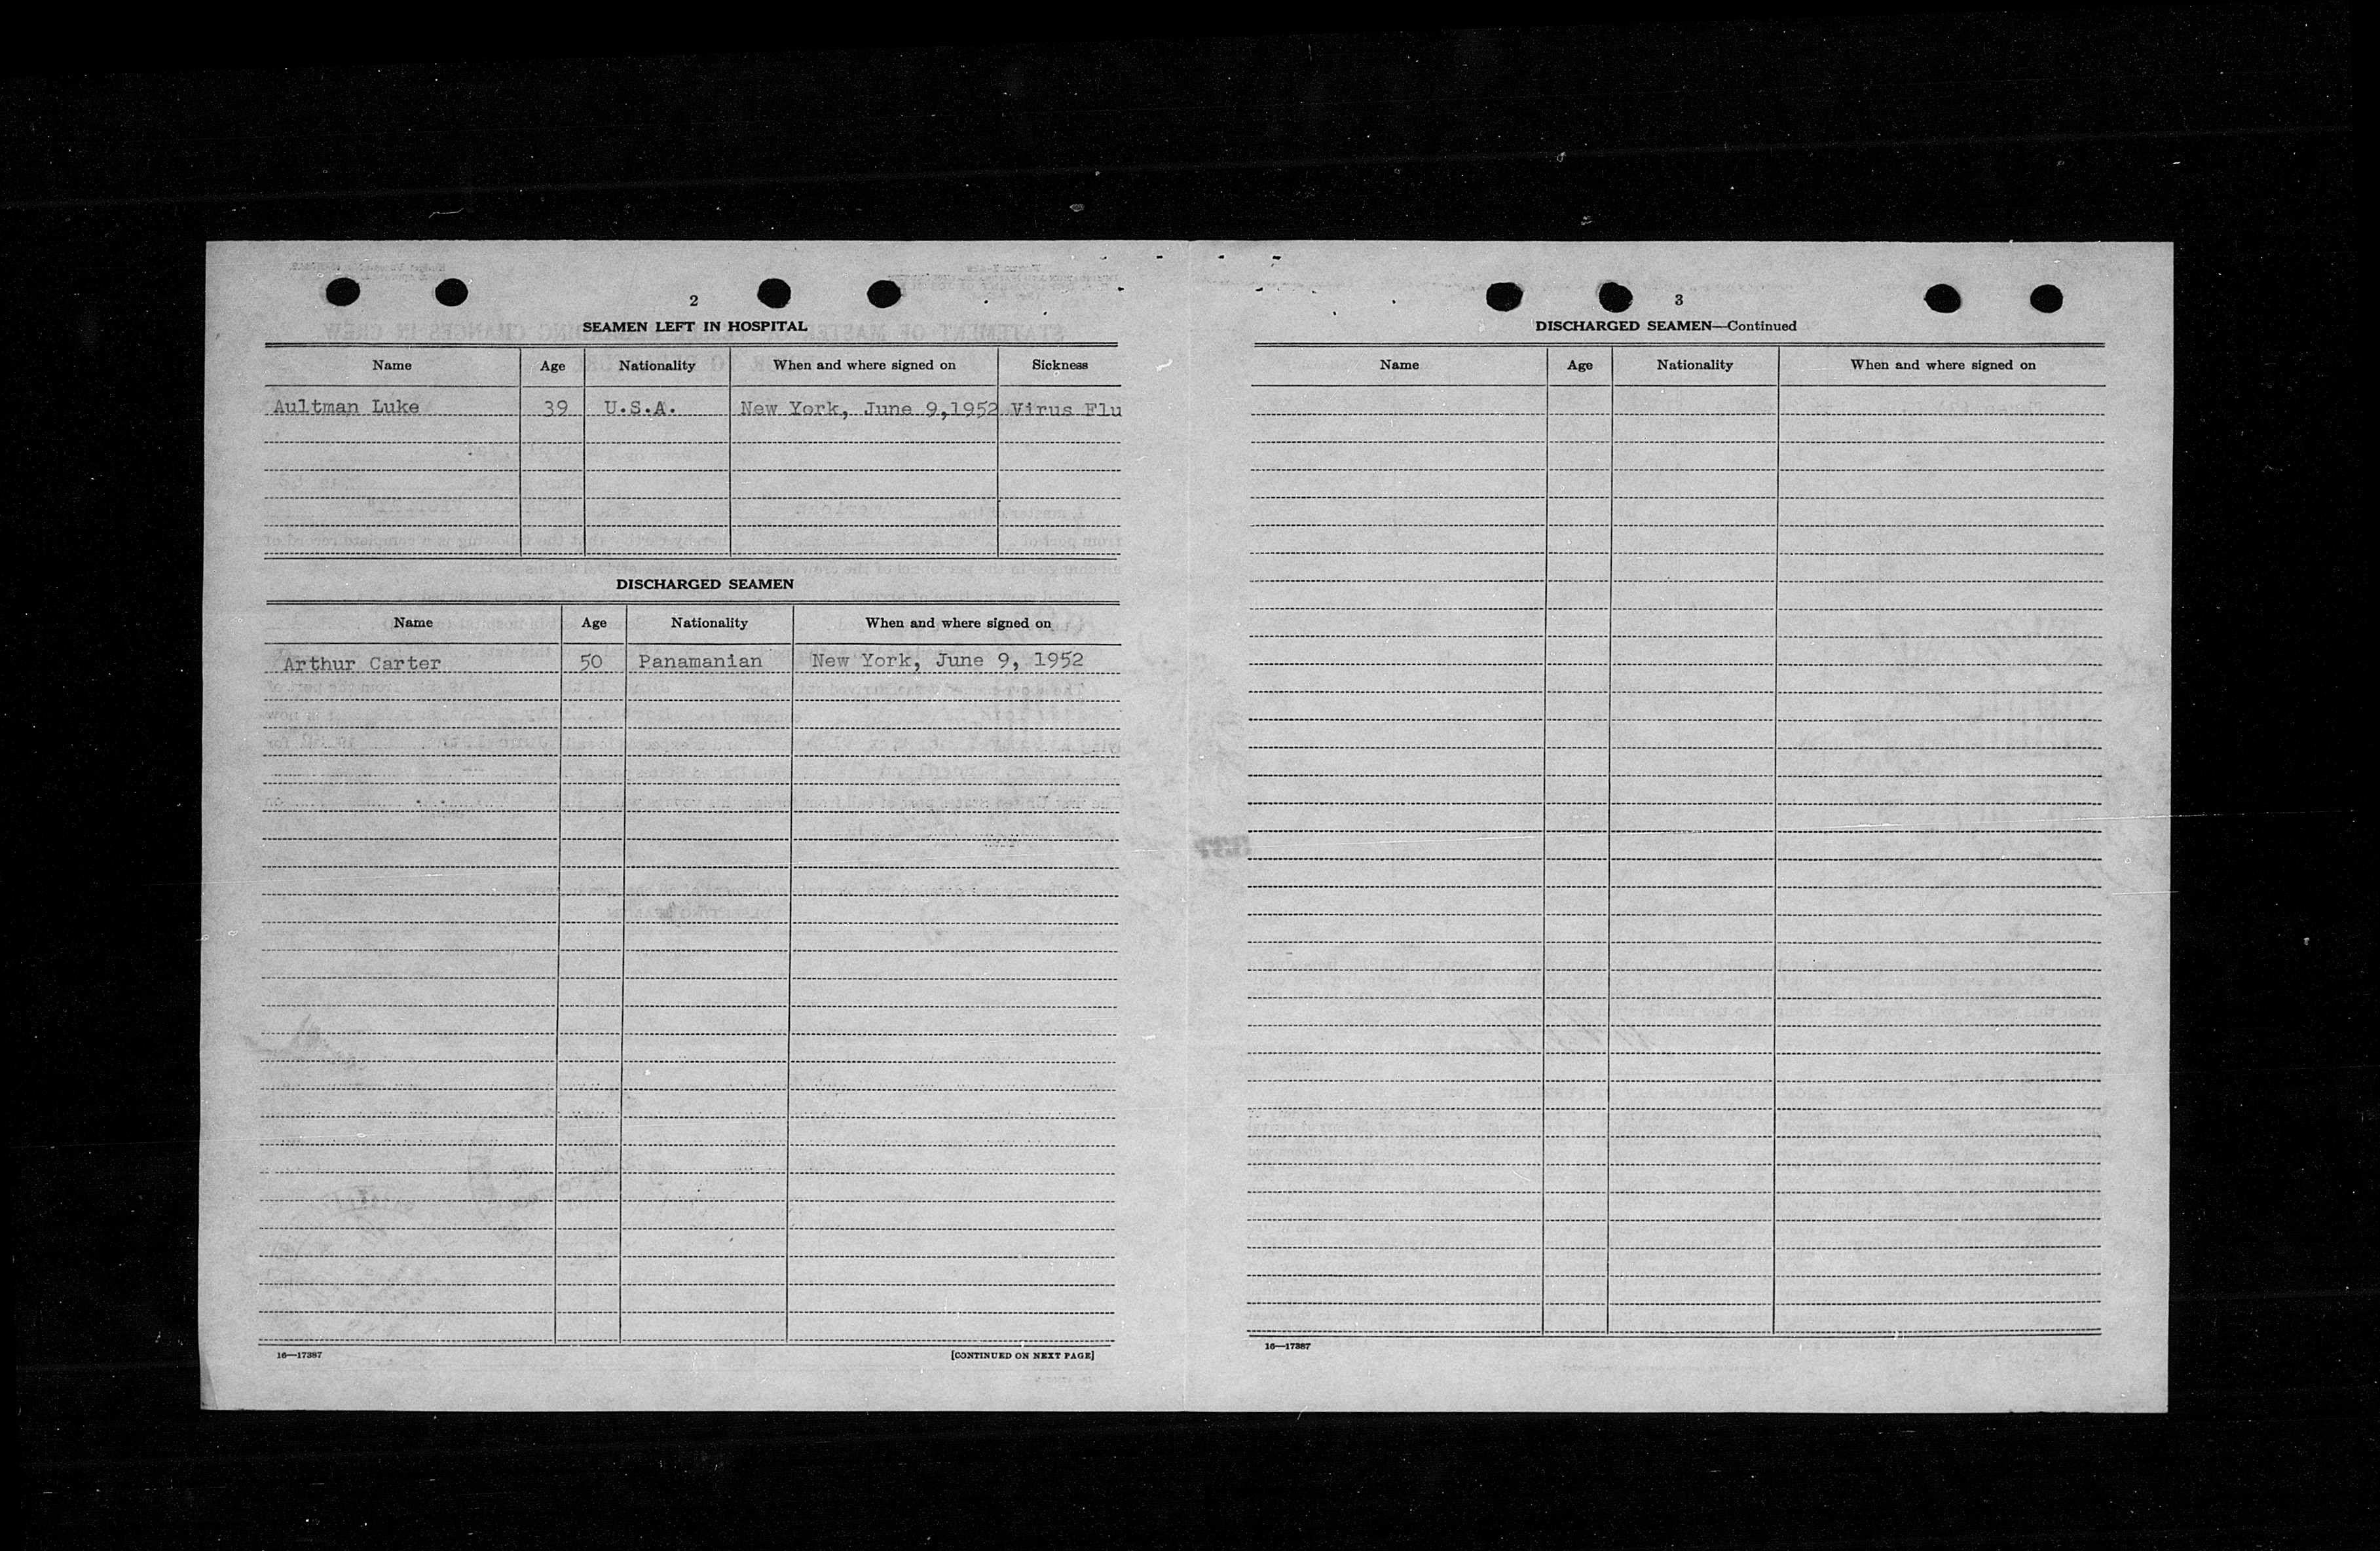 2
SEAMEN LEFT IN HOSPITAL
Name Age Nationality When and where signed on Sickness
Aultman Luke 39 U.S.A. New York, June 9,1952 Virus Flu
DISCHARGED SEAMEN
Name Age Nationality When and where signed on
Arthur Carter 50 Panamanian New York, June 9, 1952
16—17387
[CONTINUED ON NEXT PAGE]
3
DISCHARGED SEAMEN—Continued
Name Age Nationality When and where signed on
16—17387